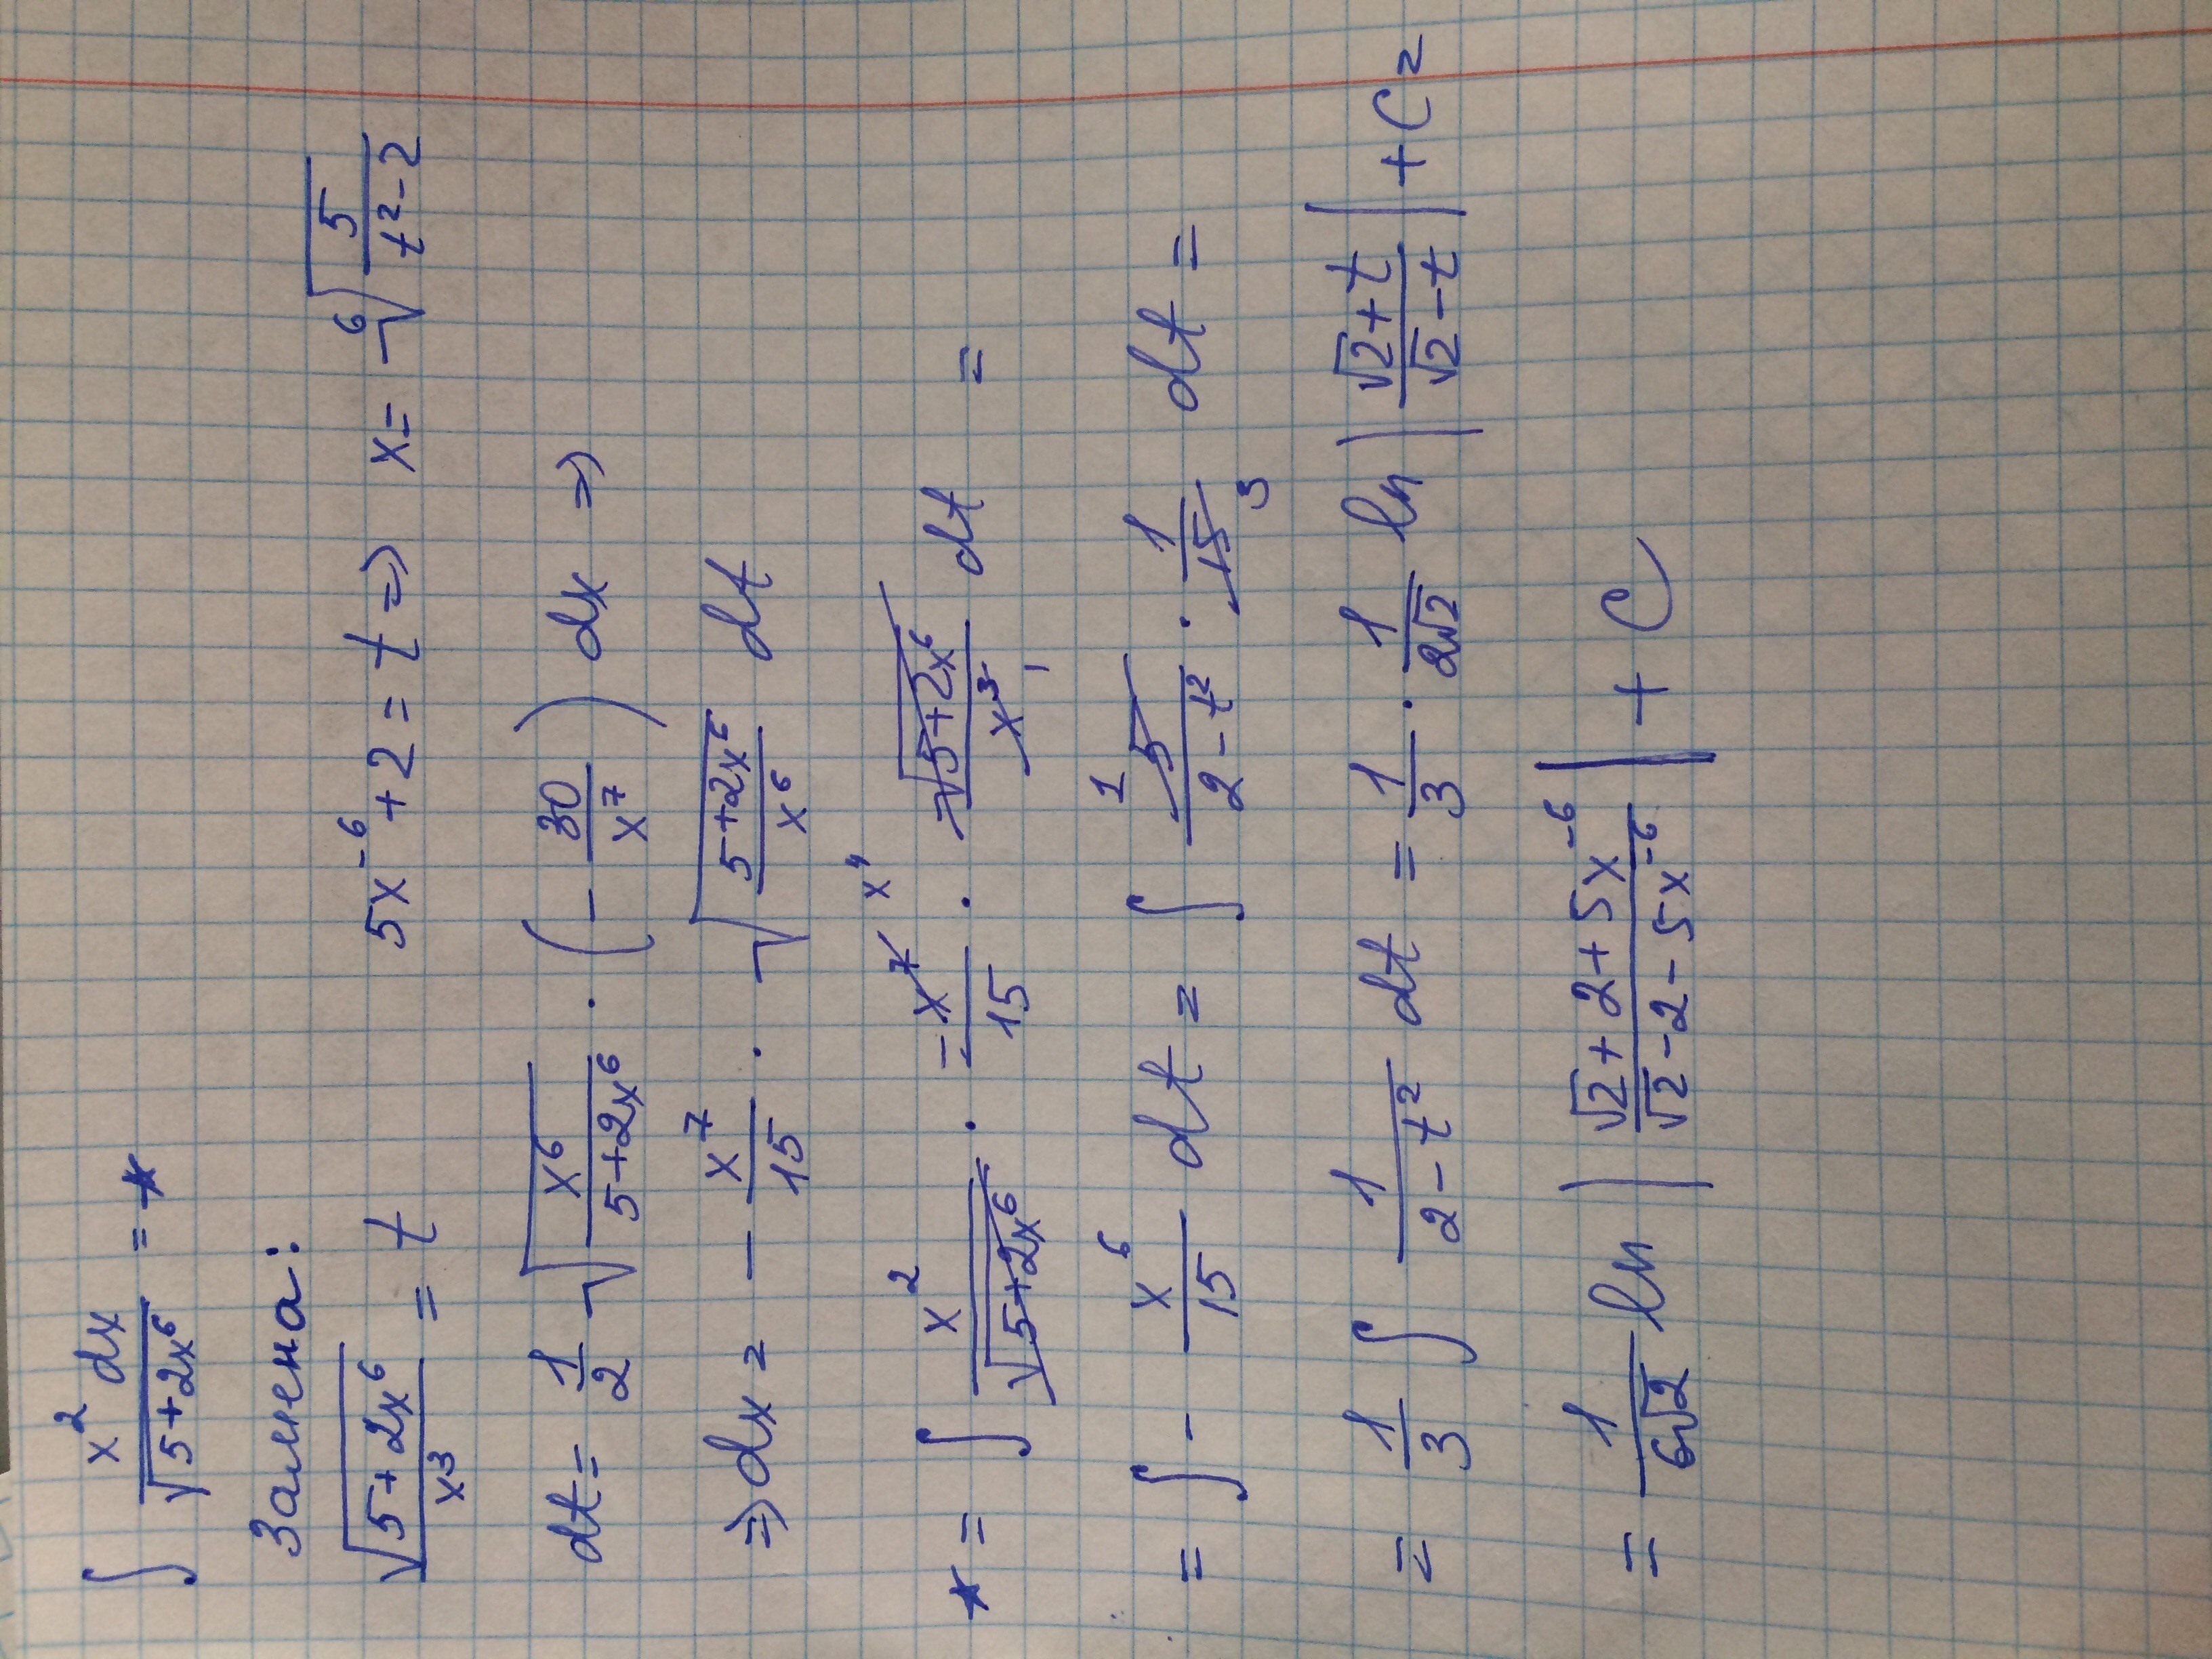 ∫ x² dx / √(5+2x⁶) = *
Замена:
√(5+2x⁶) / x³ = t   5x⁻⁶ + 2 = t ⇒ x = ⁶√(5 / (t²-2))
dt = 1/2 √(x⁶ / (5+2x⁶)) · (- 30/x⁷) dx ⇒
⇒ dx = - x⁷/15 · √((5+2x⁶) / x⁶) dt
* = ∫ x² / √(5+2x⁶) · -x⁷/15 x⁴ · √(5+2x⁶) / x³ 1 dt =
= ∫ - x⁶/15 dt = ∫ 1 5 / (2-t²) · 1/15 3 dt =
= 1/3 ∫ 1 / (2-t²) dt = 1/3 · 1/(2√2) ln |(√2+t) / (√2-t)| + C =
= 1/(6√2) ln |(√2+2+5x⁻⁶) / (√2-2-5x⁻⁶)| + C